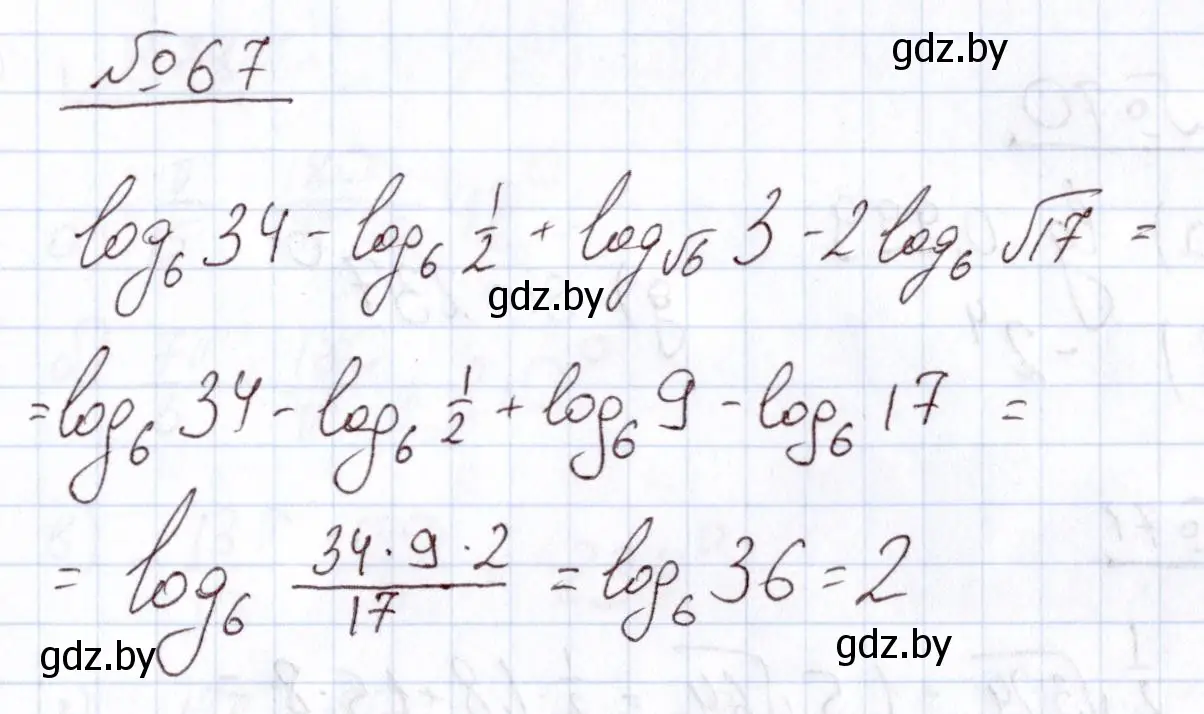 gdz.by
№ 67
log₆ 34 - log₆ 1/2 + log_√6 3 - 2 log₆ √17 =
gdz.by
= log₆ 34 - log₆ 1/2 + log₆ 9 - log₆ 17 =
= log₆ (34 · 9 · 2)/17 = log₆ 36 = 2
gdz.by gdz.by